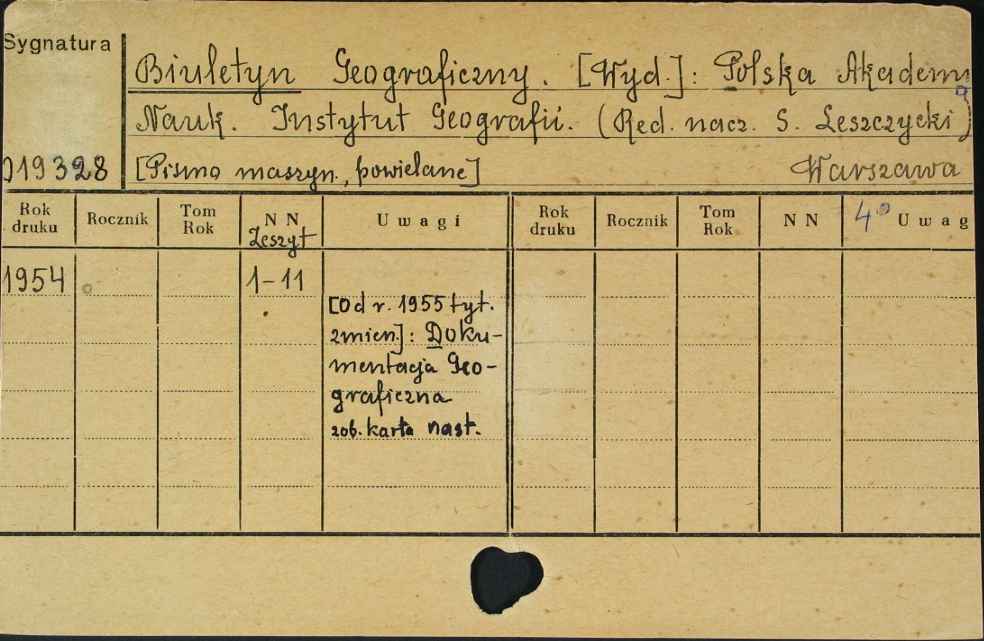 Sygnatura
Biuletyn Geograficzny. [Wyd.]: Polska Akademi
Nauk. Instytut Geografii. (Red. nacz. S. Leszczycki)
019328 [Pismo maszyn., powielane] Warszawa
Rok druku Rocznik Tom Rok N N Zeszyt Uwagi Rok druku Rocznik Tom Rok N N 4° Uwag
1954 1-11
[Od r. 1955 tyt.
zmien.]: Doku-
mentacja Geo-
graficzna
zob. karta nast.